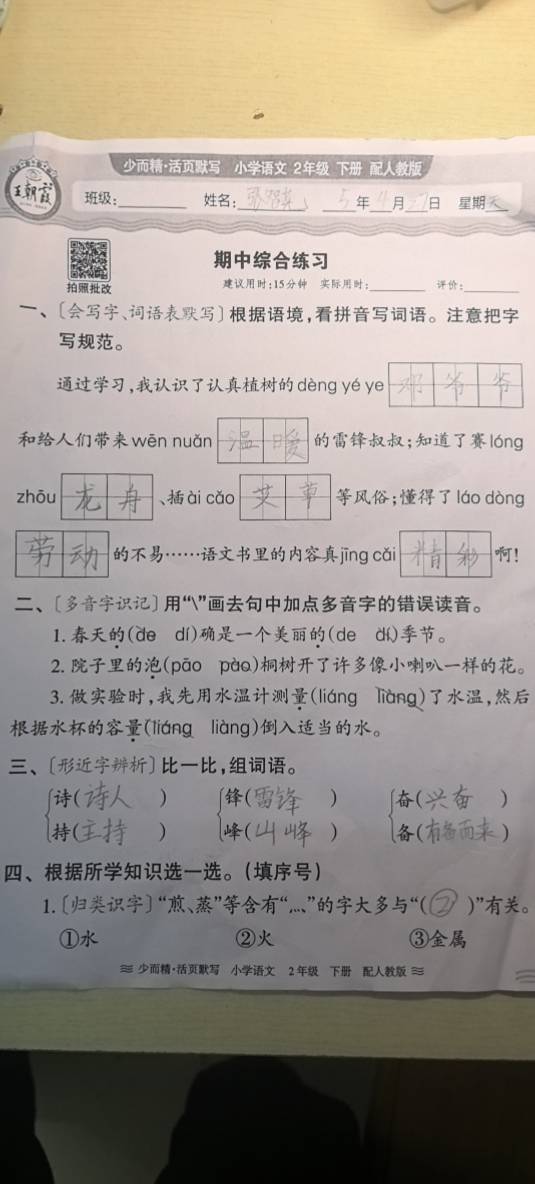 少而精·活页默写 小学语文 2年级 下册 配人教版
王朝霞
班级:________ 姓名:________ 5年4月27日 星期天
期中综合练习
拍照批改
建议用时:15分钟 实际用时:________ 评价:________
一、〔会写字、词语表默写〕根据语境,看拼音写词语。注意把字
写规范。
通过学习,我认识了认真植树的dèng yé ye 邓爷爷
和给人们带来wēn nuǎn 温暖 的雷锋叔叔;知道了赛lóng
zhōu 龙舟 、插ài cǎo 艾草 等风俗;懂得了láo dòng
劳动 的不易……语文书里的内容真jīng cǎi 精彩 啊!
二、〔多音字识记〕用“\”画去句中加点多音字的错误读音。
1. 春天的(de dí)确是一个美丽的(de dí)季节。
2. 院子里的泡(pāo pào)桐树开了许多像小喇叭一样的花。
3. 做实验时,我先用水温计测量(liáng liàng)了水温,然后
根据水杯的容量(liáng liàng)倒入适当的水。
三、〔形近字辨析〕比一比,组词语。
诗(诗人) 锋(雷锋) 奋(兴奋)
持(主持) 峰(山峰) 备(有备而来)
四、根据所学知识选一选。(填序号)
1.〔归类识字〕“煎、蒸”等含有“灬”的字大多与“(②)”有关。
①水 ②火 ③金属
少而精·活页默写 小学语文 2年级 下册 配人教版